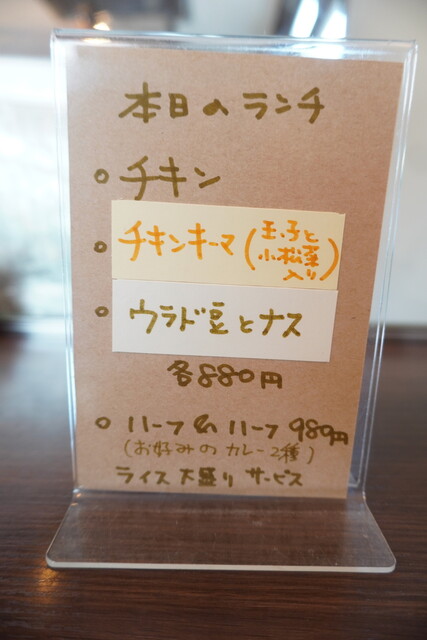 本日のランチ
○ チキン
○ チキンキーマ(玉子と
小松菜
入り)
○ ウラド豆とナス
各880円
○ ハーフ&ハーフ 980円
(お好みのカレー2種)
ライス大盛りサービス